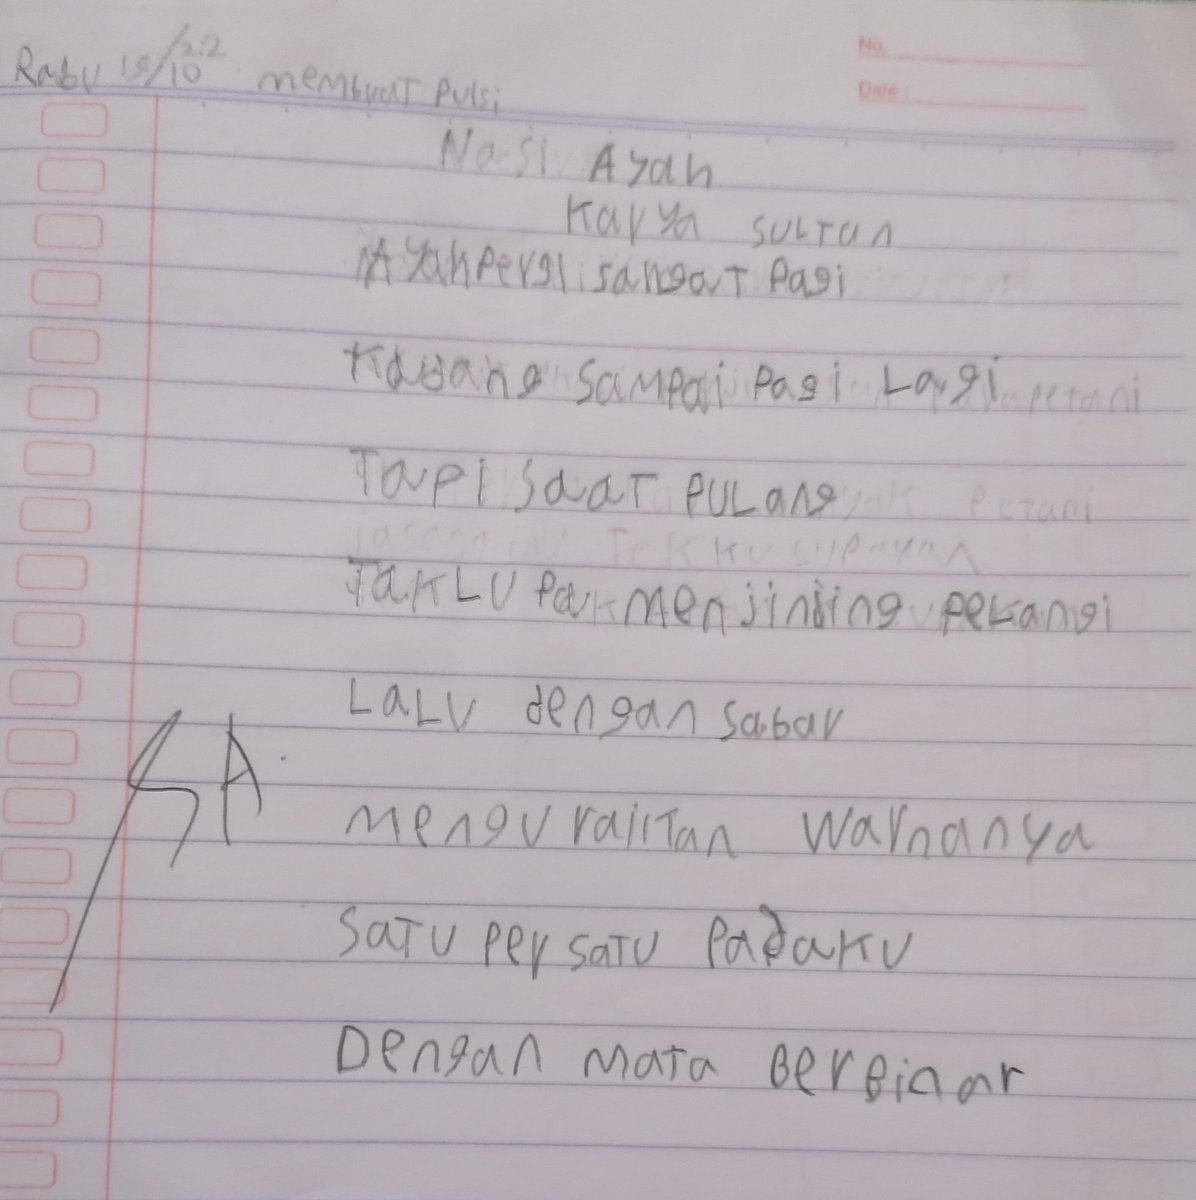 No.
Date :
Rabu 19/10 22 membuat Pulsi
Nasi Ayah
Karya Sultan
Ayah Pergi sangat Pagi
Kadang Sampai Pagi Lagi
Tapi Saat Pulang
Tak Lupak menjinjing pelangi
Lalu dengan sabar
menguraikan warnanya
Satu Per satu Padaku
Dengan mata Berbinar
SA